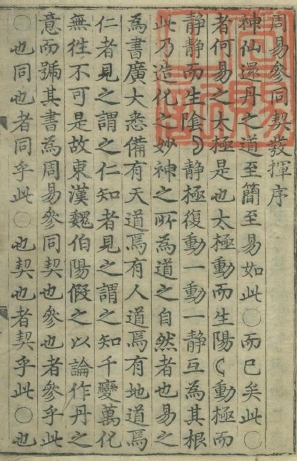 周易參同契發揮序
神仙還丹之道至簡至易如此〇而已矣此〇
者何易之太極是也太極動而生陽☾動極而
靜靜而生陰☽靜極復動一動一靜互為其根
此乃造化之妙神之所為道之自然者也易之
為書廣大悉備有天道焉有人道焉有地道焉
仁者見之謂之仁知者見之謂之知千變萬化
無徃不可是故東漢魏伯陽假之以論作丹之
意而號其書為周易參同契也參也者參乎此
〇也同也者同乎此〇也契也者契乎此〇也